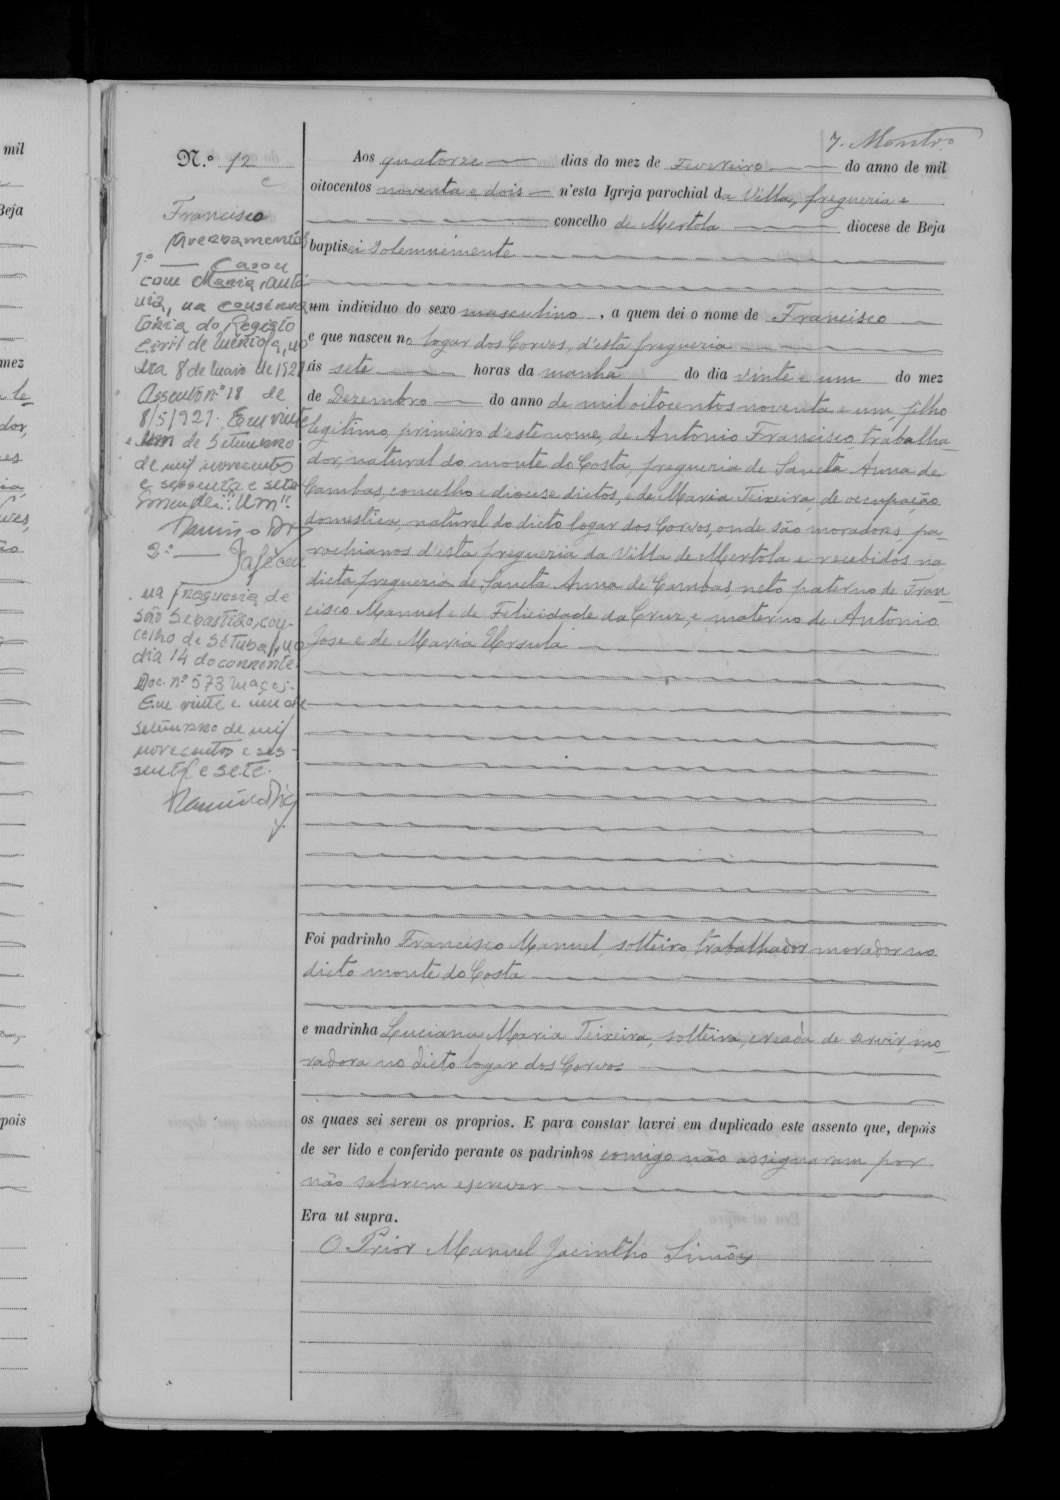 mil
Beja
mez
pois
7. Montr.º
N.º 12
Francisco
Averbamentos
1.º — Casou
com Maria Antó
nia, na conserva
tória do Registo
Civil de Mértola, no
dia 8 de Maio de 1927
Assento nº 18 de
8/5/927. Em vinte
e um de Setembro
de mil novecentos
e sessenta e sete
Emendei: "Um"
2.º — Faleceu
na Freguesia de
São Sebastião, con-
celho de Setubal, no
dia 14 do corrente.
Doc. nº 573 maço
Em vinte e um de
setembro de mil
novecentos e ses-
senta e sete.
Aos quatorze dias do mez de Fevereiro do anno de mil
oitocentos noventa e dois n'esta Igreja parochial da Villa, freguezia e
concelho de Mertola diocese de Beja
baptisei solemnemente
um individuo do sexo masculino, a quem dei o nome de Francisco
e que nasceu no logar dos Corvos, d'esta freguezia
ás sete horas da manhã do dia vinte e um do mez
de Dezembro do anno de mil oitocentos noventa e um, filho
legitimo, primeiro d'este nome, de Antonio Francisco, trabalha-
dor, natural do monte do Costa, freguezia de Sancta Anna de
Cambas, concelho e diocese dictos, e de Maria Teixeira, de occupação
domestica, natural do dicto logar dos Corvos, onde são moradores, pa-
rochianos d'esta freguezia da Villa de Mertola e recebidos na
dicta freguezia de Sancta Anna de Cambas, neto paterno de Fran-
cisco Manuel e de Felicidade da Cruz, e materno de Antonio
Jose e de Maria Ursula
Foi padrinho Francisco Manuel, solteiro, trabalhador morador no
dicto monte do Costa
e madrinha Luciana Maria Teixeira, solteira, creada de servir, mo-
radora no dicto logar dos Corvos
os quaes sei serem os proprios. E para constar lavrei em duplicado este assento que, depois
de ser lido e conferido perante os padrinhos comigo não assignaram por
não saberem escrever
Era ut supra.
O Prior Manuel Jacintho Simões